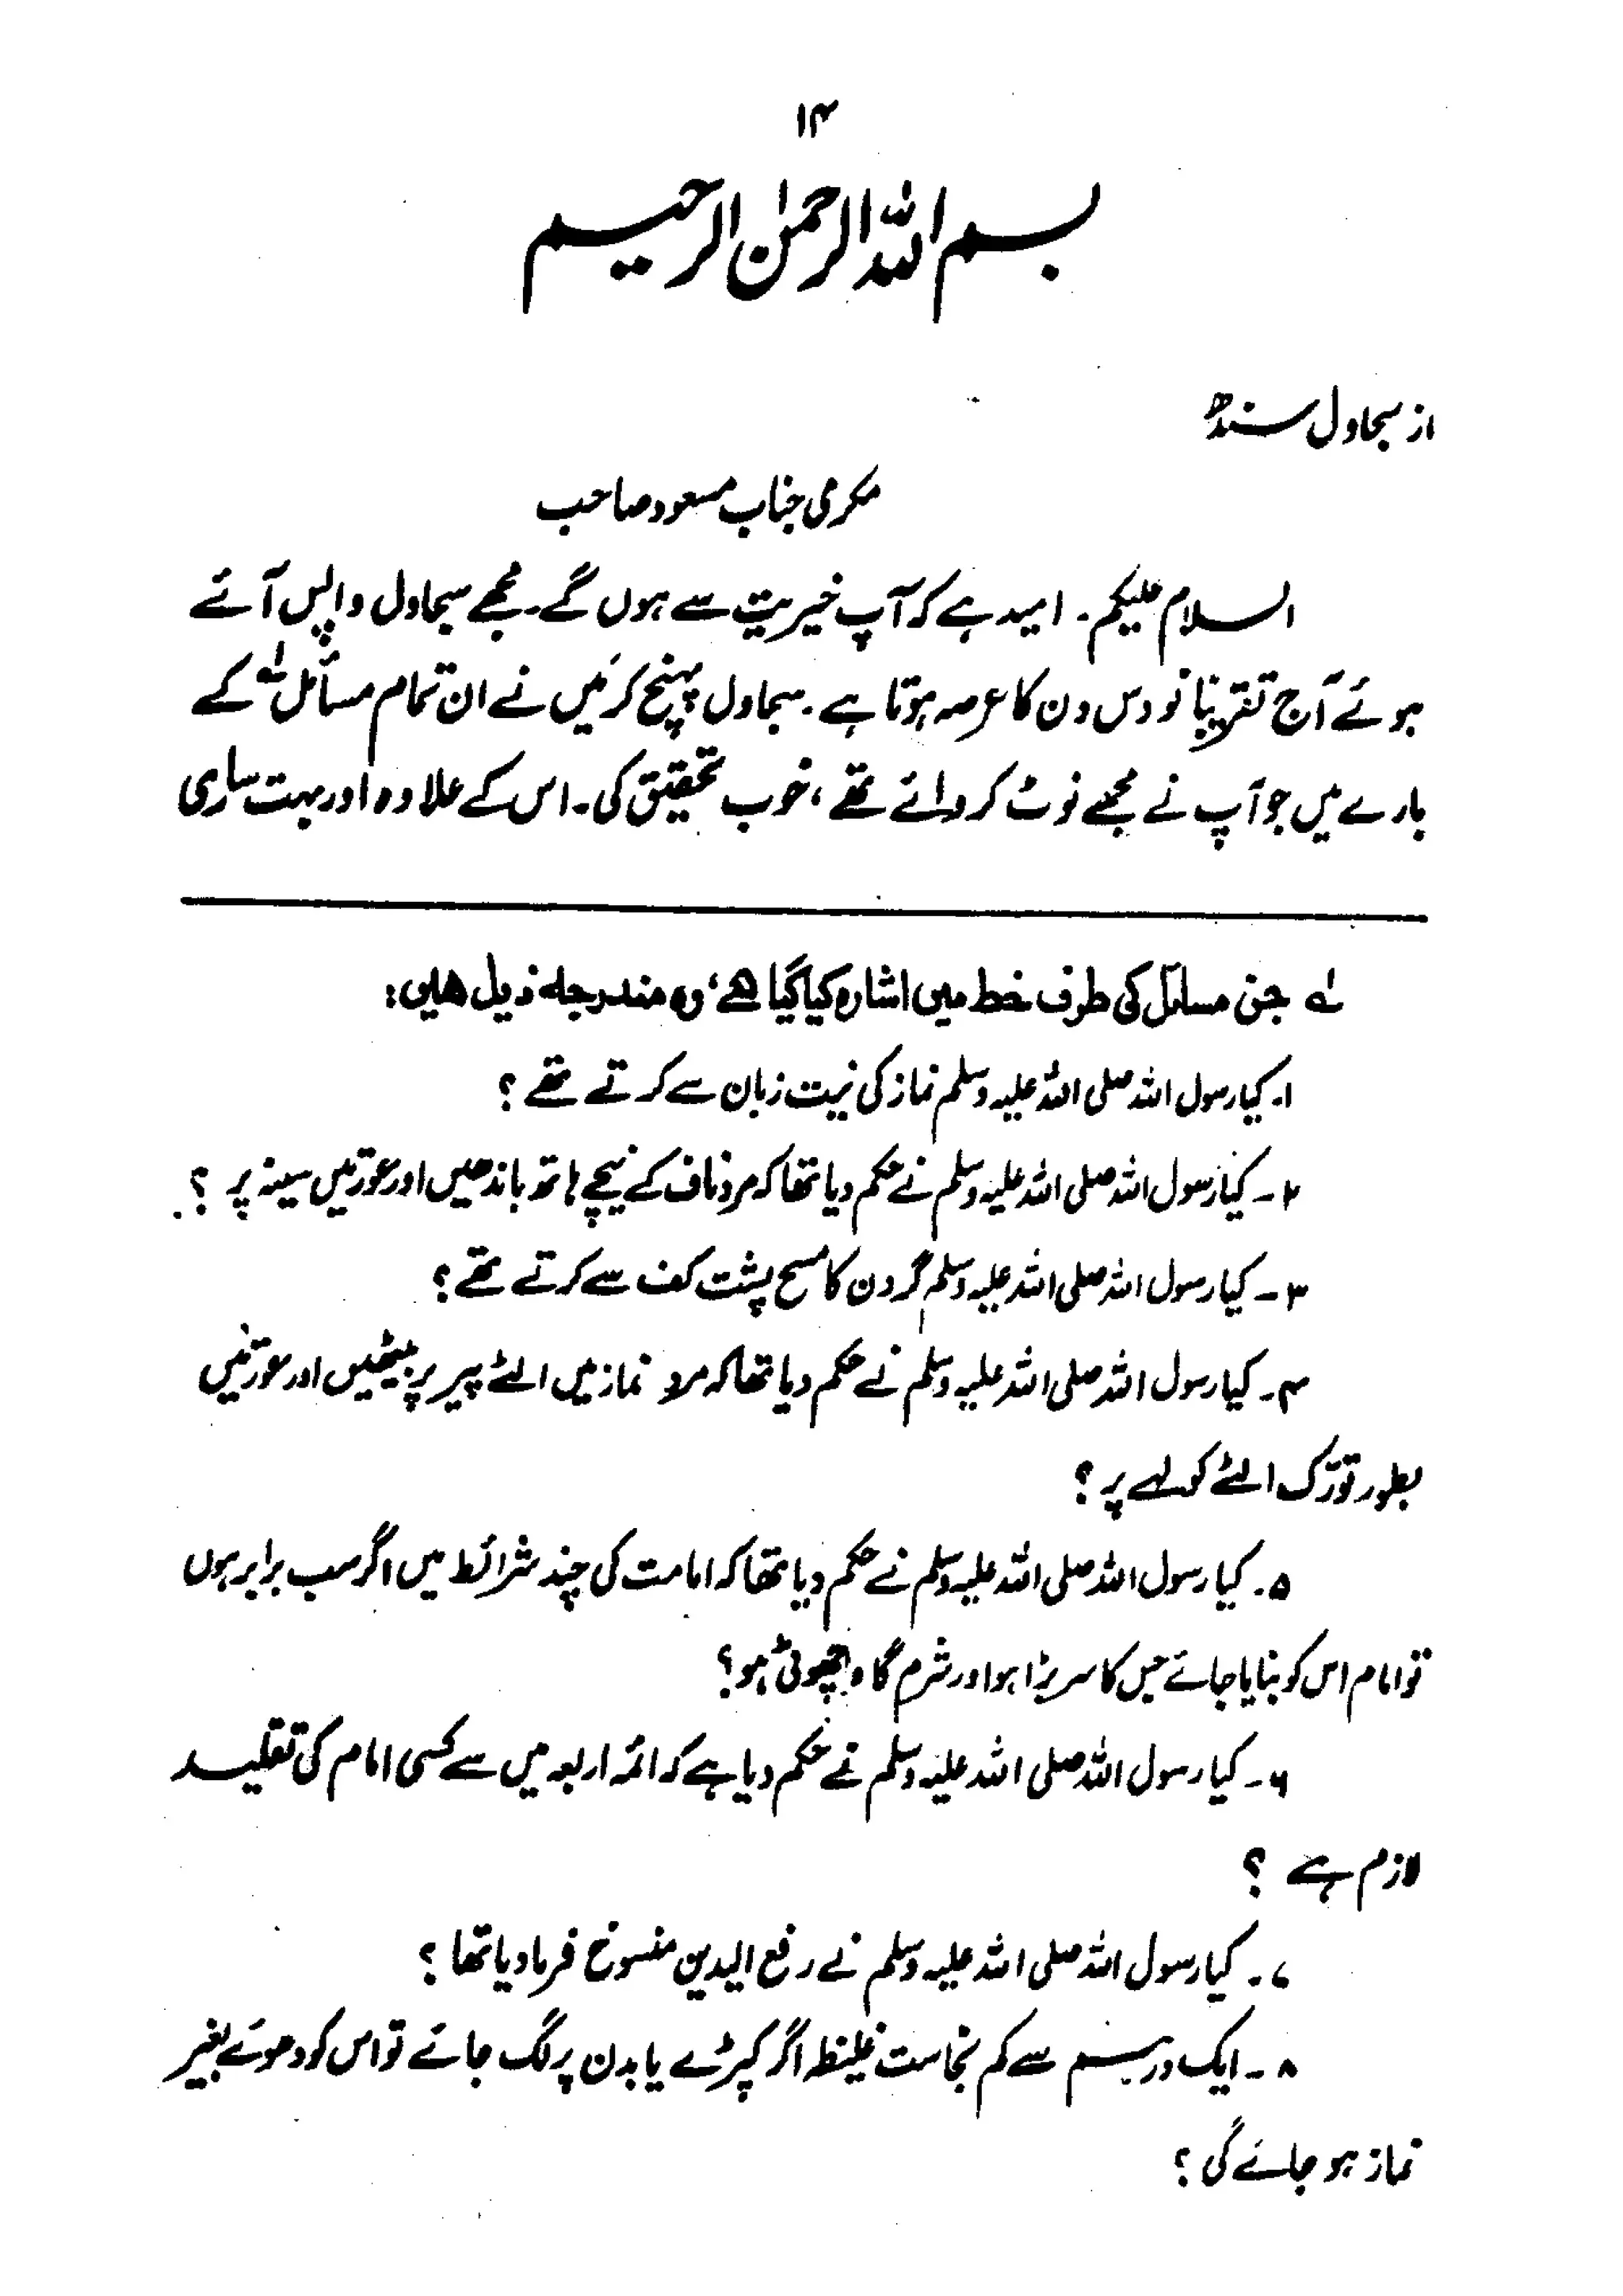 ۱۴
بسم اللہ الرحمٰن الرحیم
از سجاول سندھ
مکرمی جناب مسعود صاحب
السلام علیکم۔ امید ہے کہ آپ خیریت سے ہوں گے۔ مجھے سجاول واپس آئے
ہوئے آج تقریباً نو دس دن کا عرصہ ہوتا ہے۔ سجاول پہنچ کر میں نے ان تمام مسائل لہ کے
بارے میں جو آپ نے مجھے نوٹ کروائے تھے، خوب تحقیق کی۔ اس کے علاوہ اور بہت ساری
لہ جن مسائل کی طرف خط میں اشارہ کیا گیا ہے، وہ مندرجہ ذیل ہیں:
۱۔ کیا رسول اللہ صلی اللہ علیہ وسلم نماز کی نیت زبان سے کرتے تھے؟
۲۔ کیا رسول اللہ صلی اللہ علیہ وسلم نے حکم دیا تھا کہ مرد ناف کے نیچے ہاتھ باندھیں اور عورتیں سینہ پر؟
۳۔ کیا رسول اللہ صلی اللہ علیہ وسلم گردن کا مسح پشت کف سے کرتے تھے؟
۴۔ کیا رسول اللہ صلی اللہ علیہ وسلم نے حکم دیا تھا کہ مرد نماز میں الٹے پیر پر بیٹھیں اور عورتیں
بطور تورّک الٹے کولہے پر؟
۵۔ کیا رسول اللہ صلی اللہ علیہ وسلم نے حکم دیا تھا کہ امامت کی چند شرائط میں اگر سب برابر ہوں
تو امام اس کو بنایا جائے جس کا سر بڑا ہو اور شرم گاہ چھوٹی ہو؟
۶۔ کیا رسول اللہ صلی اللہ علیہ وسلم نے حکم دیا ہے کہ ائمہ اربعہ میں سے کسی امام کی تقلید
لازم ہے؟
۷۔ کیا رسول اللہ صلی اللہ علیہ وسلم نے رفع الیدین منسوخ فرما دیا تھا؟
۸۔ ایک درہم سے کم نجاست غلیظہ اگر کپڑے یا بدن پر لگ جائے تو اس کو دھوئے بغیر
نماز ہو جائے گی؟